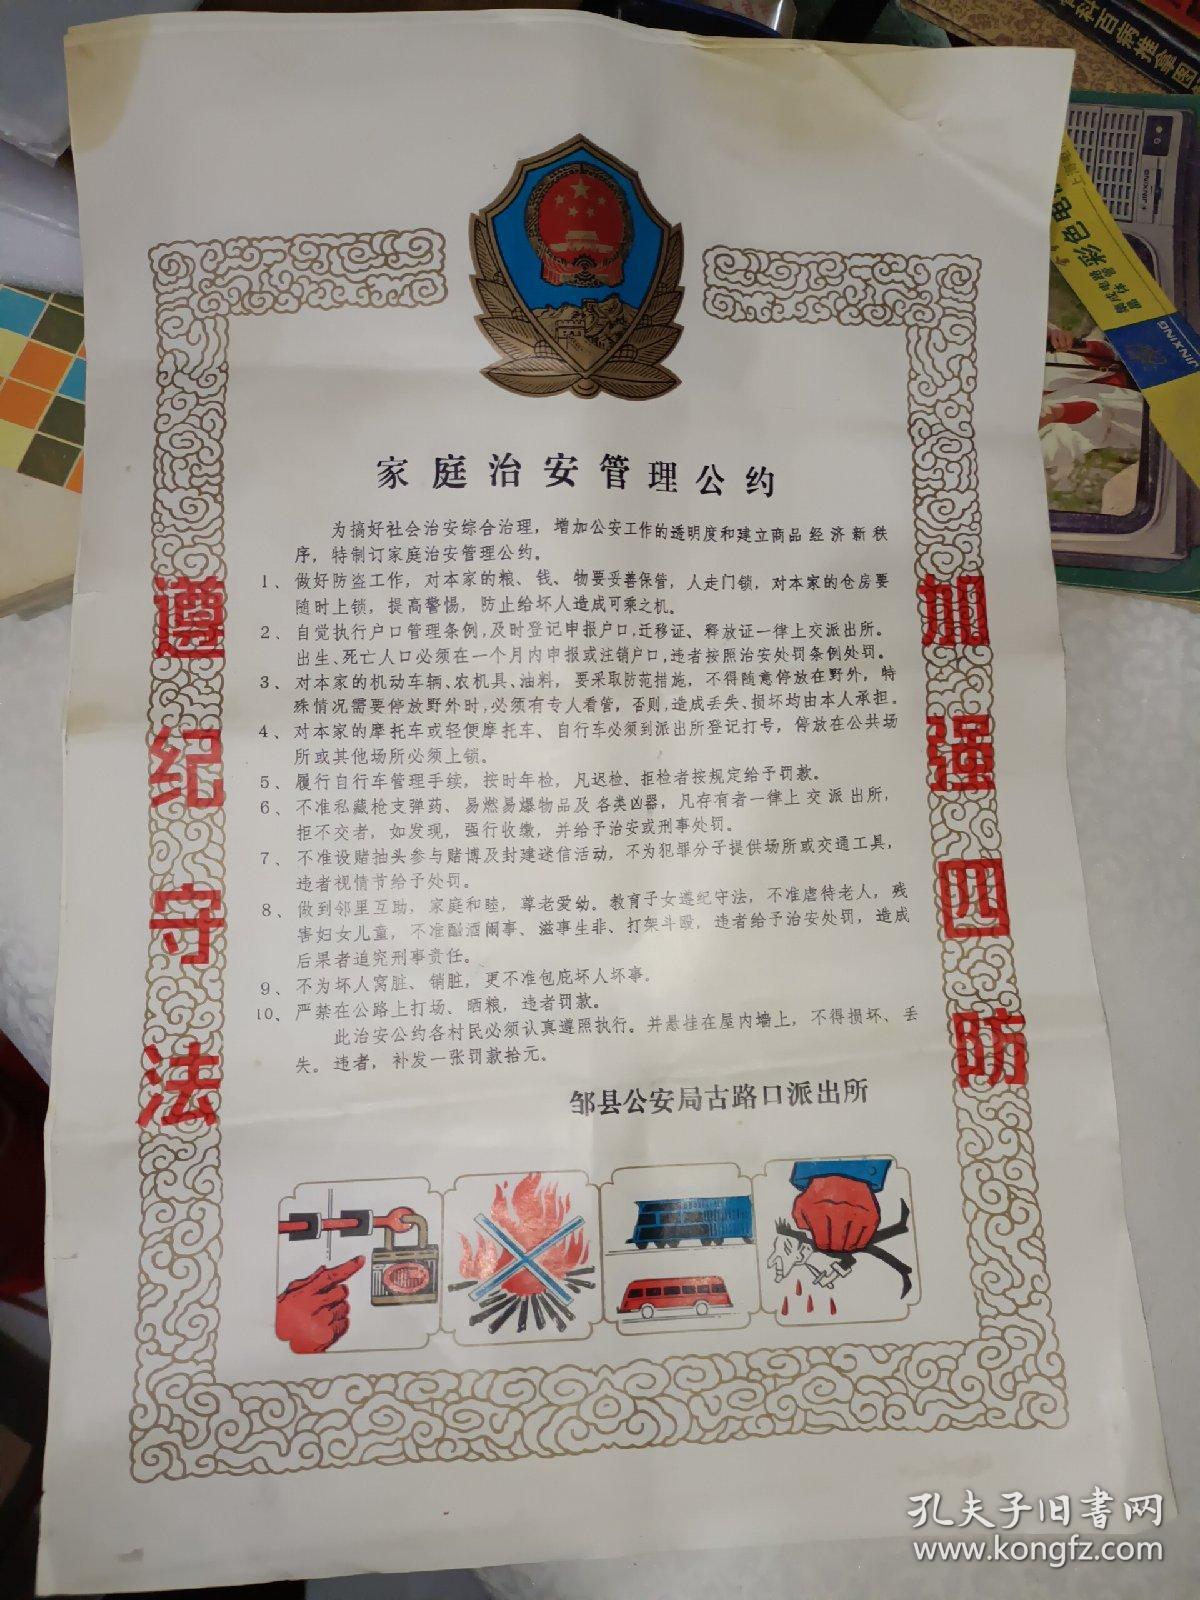 家庭治安管理公约
为搞好社会治安综合治理，增加公安工作的透明度和建立商品经济新秩
序，特制订家庭治安管理公约。
1、做好防盗工作，对本家的粮、钱、物要妥善保管，人走门锁，对本家的仓房要
随时上锁，提高警惕，防止给坏人造成可乘之机。
2、自觉执行户口管理条例，及时登记申报户口，迁移证、释放证一律上交派出所。
出生、死亡人口必须在一个月内申报或注销户口，违者按照治安处罚条例处罚。
3、对本家的机动车辆、农机具、油料，要采取防范措施，不得随意停放在野外，特
殊情况需要停放野外时，必须有专人看管，否则，造成丢失、损坏均由本人承担。
4、对本家的摩托车或轻便摩托车、自行车必须到派出所登记打号，停放在公共场
所或其他场所必须上锁。
5、履行自行车管理手续，按时年检，凡迟检、拒检者按规定给予罚款。
6、不准私藏枪支弹药、易燃易爆物品及各类凶器，凡存有者一律上交派出所，
拒不交者，如发现，强行收缴，并给予治安或刑事处罚。
7、不准设赌抽头参与赌博及封建迷信活动，不为犯罪分子提供场所或交通工具，
违者视情节给予处罚。
8、做到邻里互助，家庭和睦，尊老爱幼。教育子女遵纪守法，不准虐待老人，残
害妇女儿童，不准酗酒闹事、滋事生非、打架斗殴，违者给予治安处罚，造成
后果者追究刑事责任。
9、不为坏人窝脏、销脏，更不准包庇坏人坏事。
10、严禁在公路上打场、晒粮，违者罚款。
此治安公约各村民必须认真遵照执行。并悬挂在屋内墙上，不得损坏、丢
失。违者，补发一张罚款拾元。
邹县公安局古路口派出所
遵纪守法
加强四防
科百病推拿图
彩色电
集成电路
晶体管
JINXING
孔夫子旧书网
www.kongfz.com